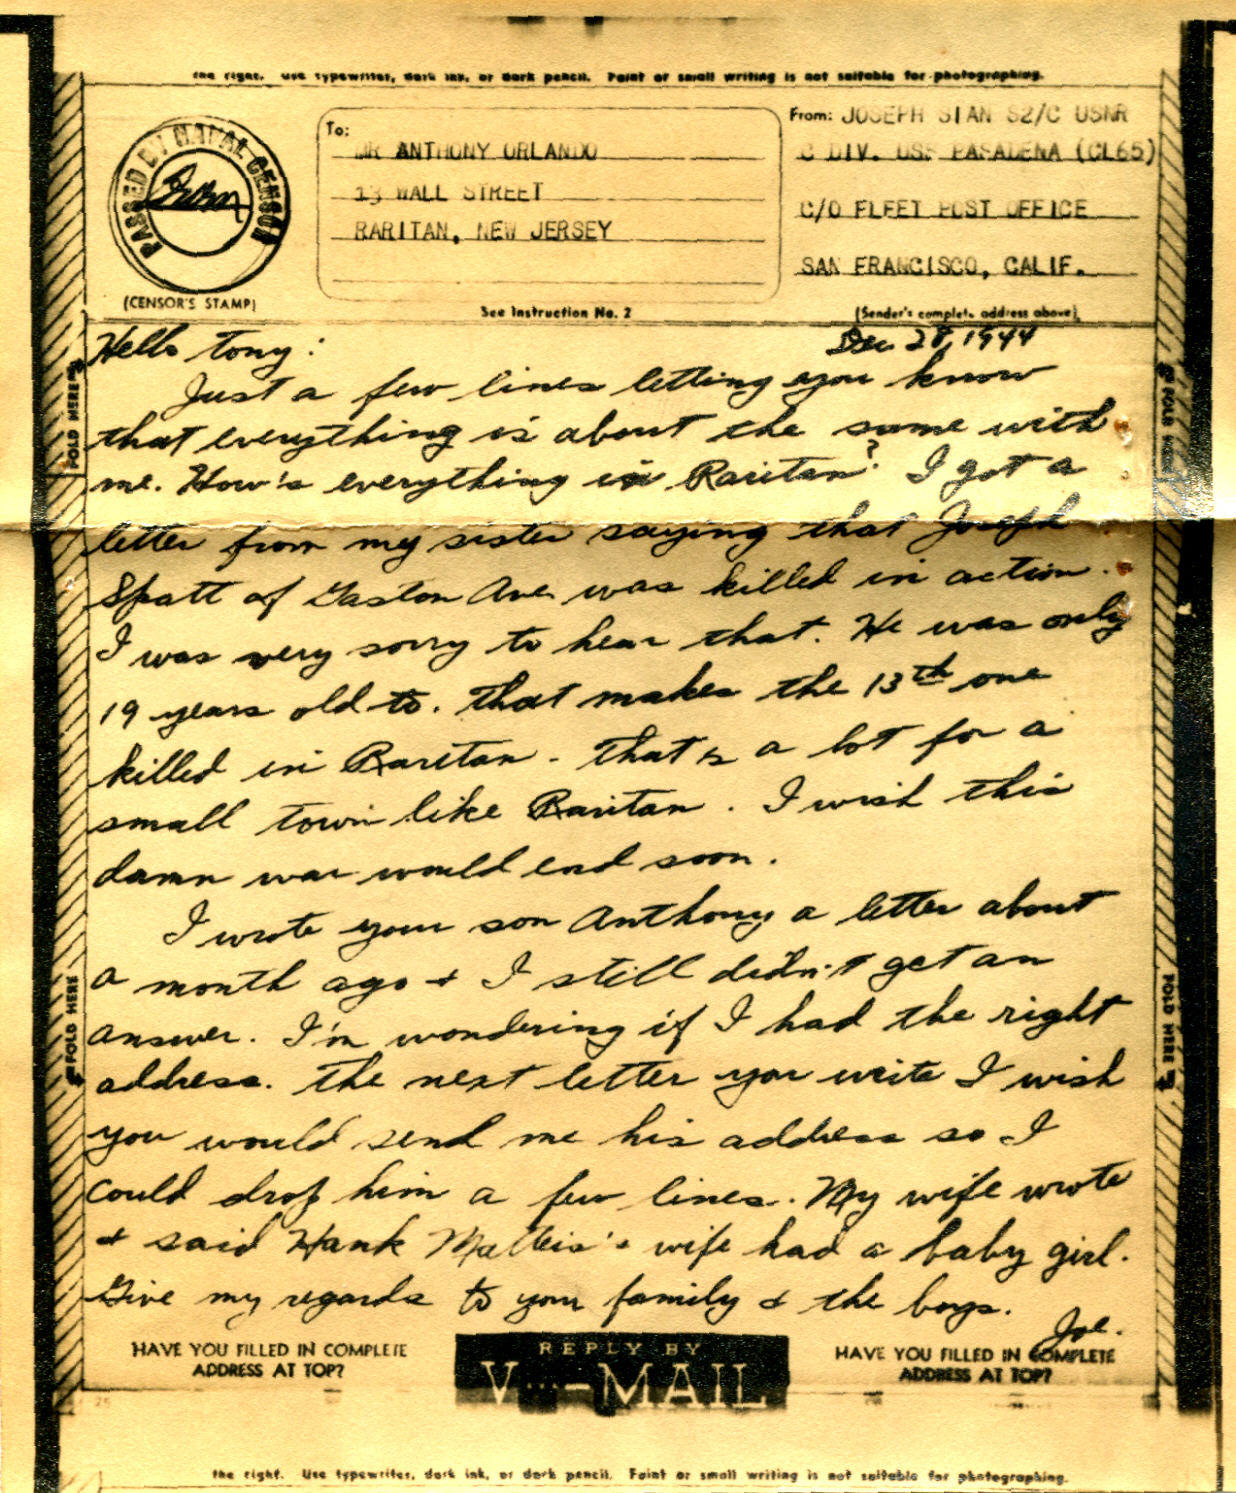 the right. Use typewriter, dark ink, or dark pencil. Faint or small writing is not suitable for photographing.
PASSED BY NAVAL CENSOR
(CENSOR'S STAMP)
To:
MR ANTHONY ORLANDO
13 WALL STREET
RARITAN, NEW JERSEY
See Instruction No. 2
From: JOSEPH SIAN S2/C USNR
C DIV. USS PASADENA (CL65)
C/O FLEET POST OFFICE
SAN FRANCISCO, CALIF.
(Sender's complete address above)
Dec 28, 1944
Hello Tony:
Just a few lines letting you know
that everything is about the same with
me. How's everything in Raritan? I got a
letter from my sister saying that Joseph
Spatt of Gaston Ave was killed in action.
I was very sorry to hear that. He was only
19 years old to. That makes the 13th one
killed in Raritan. That is a lot for a
small town like Raritan. I wish this
damn war would end soon.
I wrote your son Anthony a letter about
a month ago & I still didn't get an
answer. I'm wondering if I had the right
address. The next letter you write I wish
you would send me his address so I
could drop him a few lines. My wife wrote
& said Hank Matteis's wife had a baby girl.
Give my regards to your family & the boys.
Joe.
FOLD HERE
FOLD HERE
FOLD HERE
FOLD HERE
HAVE YOU FILLED IN COMPLETE
ADDRESS AT TOP?
REPLY BY
V...-MAIL
HAVE YOU FILLED IN COMPLETE
ADDRESS AT TOP?
the right. Use typewriter, dark ink, or dark pencil. Faint or small writing is not suitable for photographing.